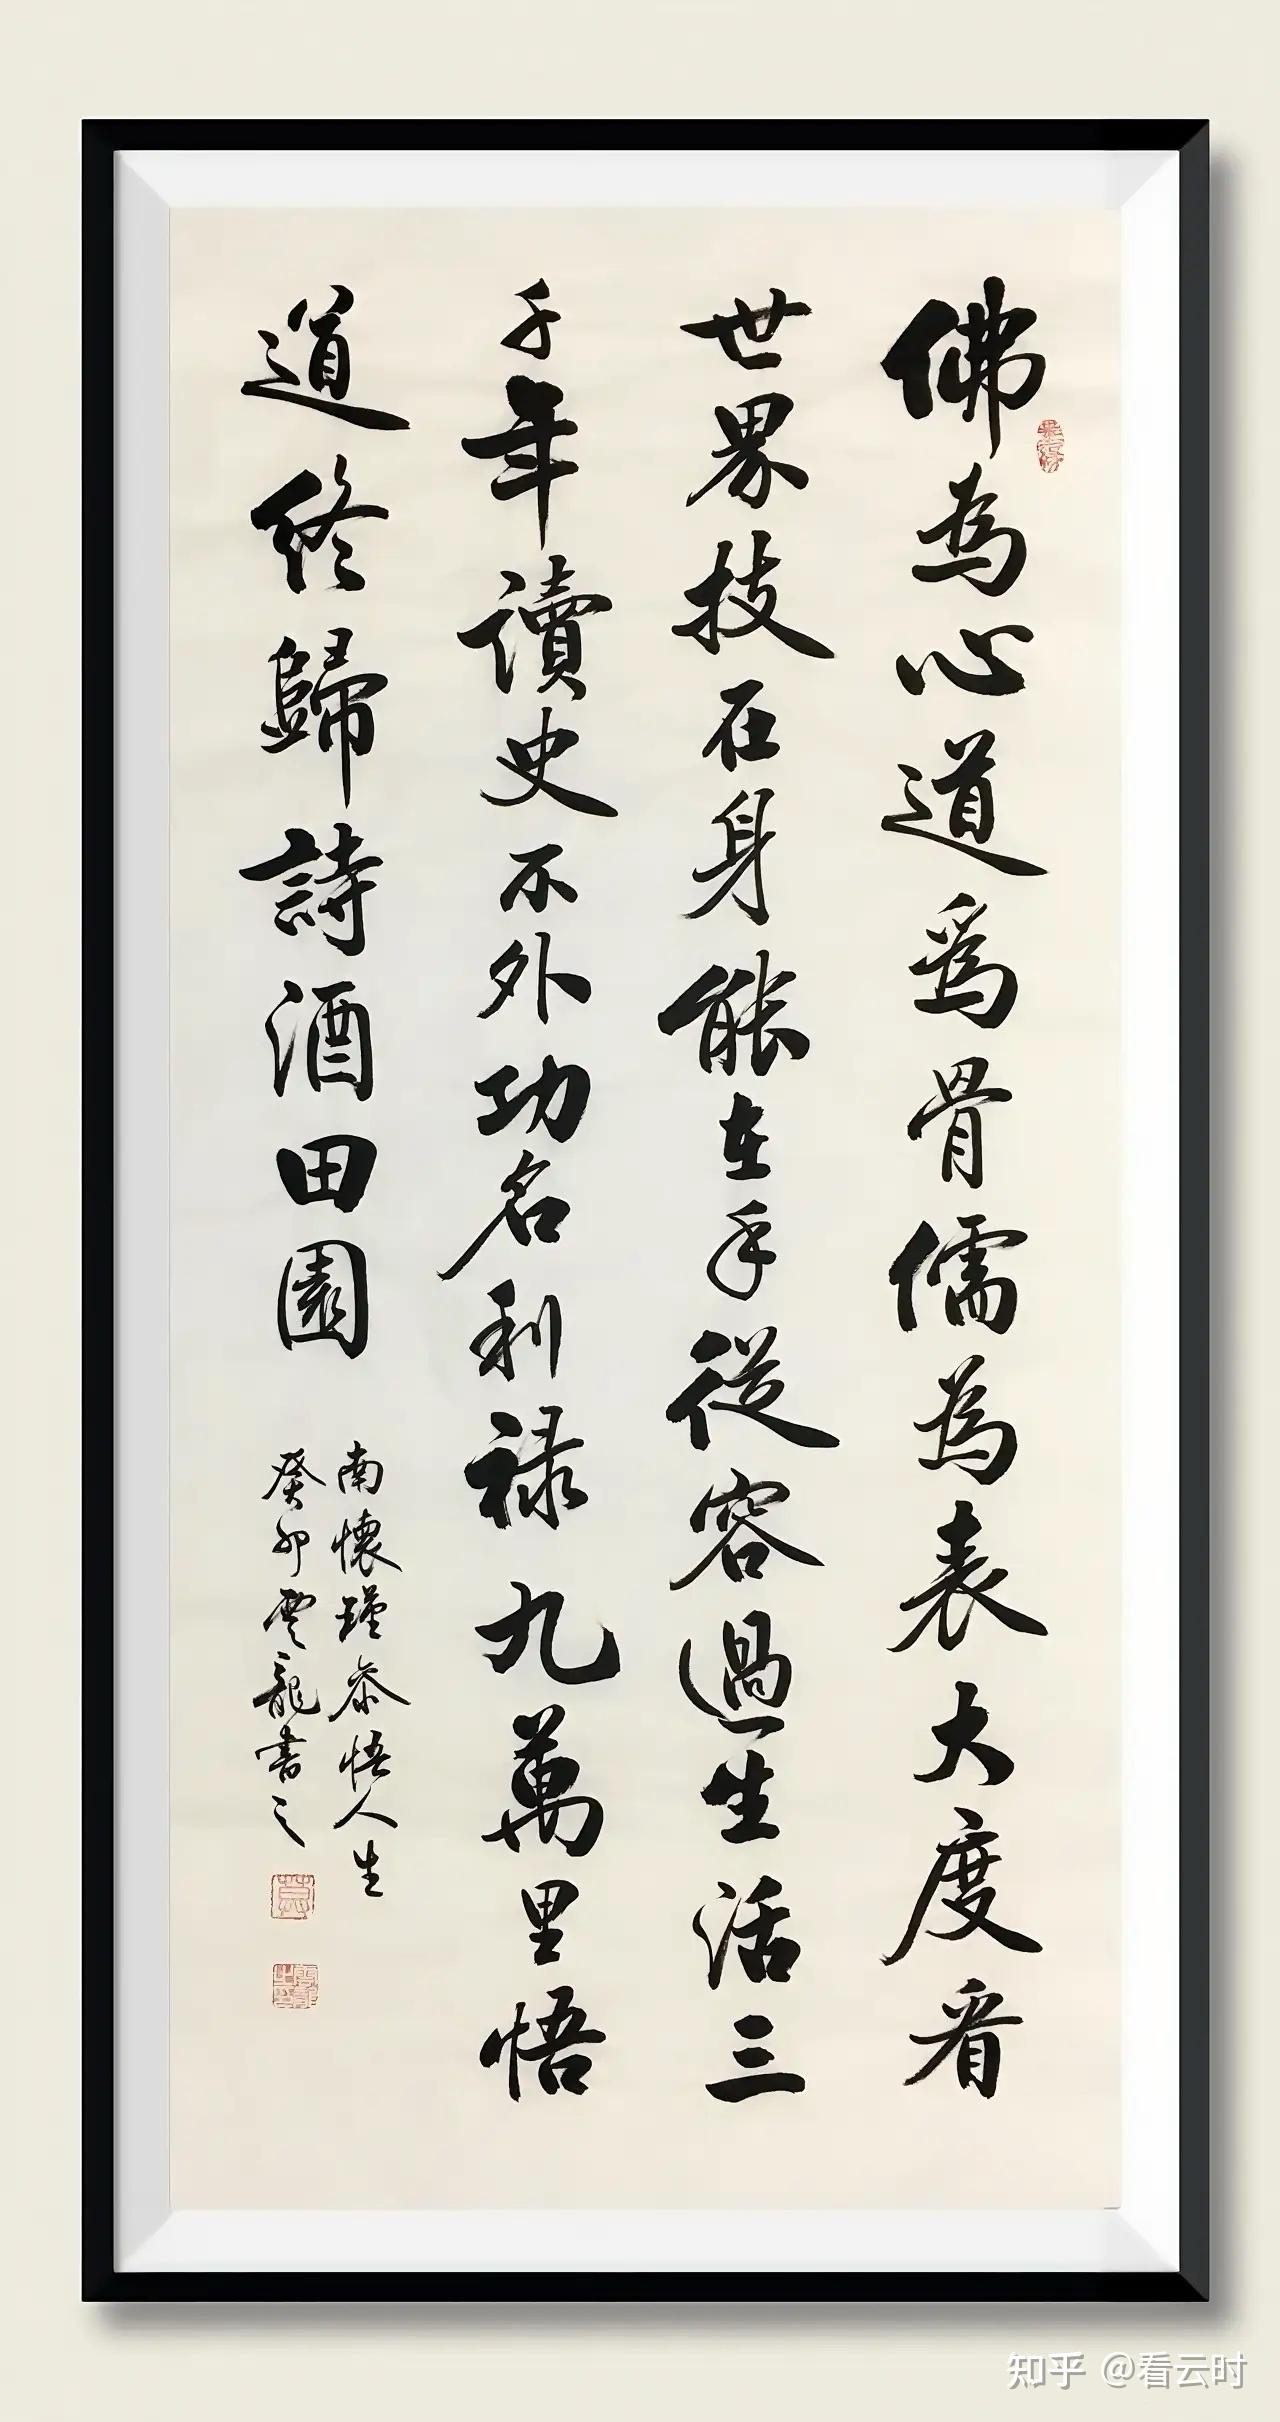 佛為心道爲骨儒為表大度看
世界技在身能在手從容過生活三
千年讀史不外功名利祿九萬里悟
道終歸詩酒田園
南懷瑾叅悟人生
癸卯雲龍書之
知乎 @看云时